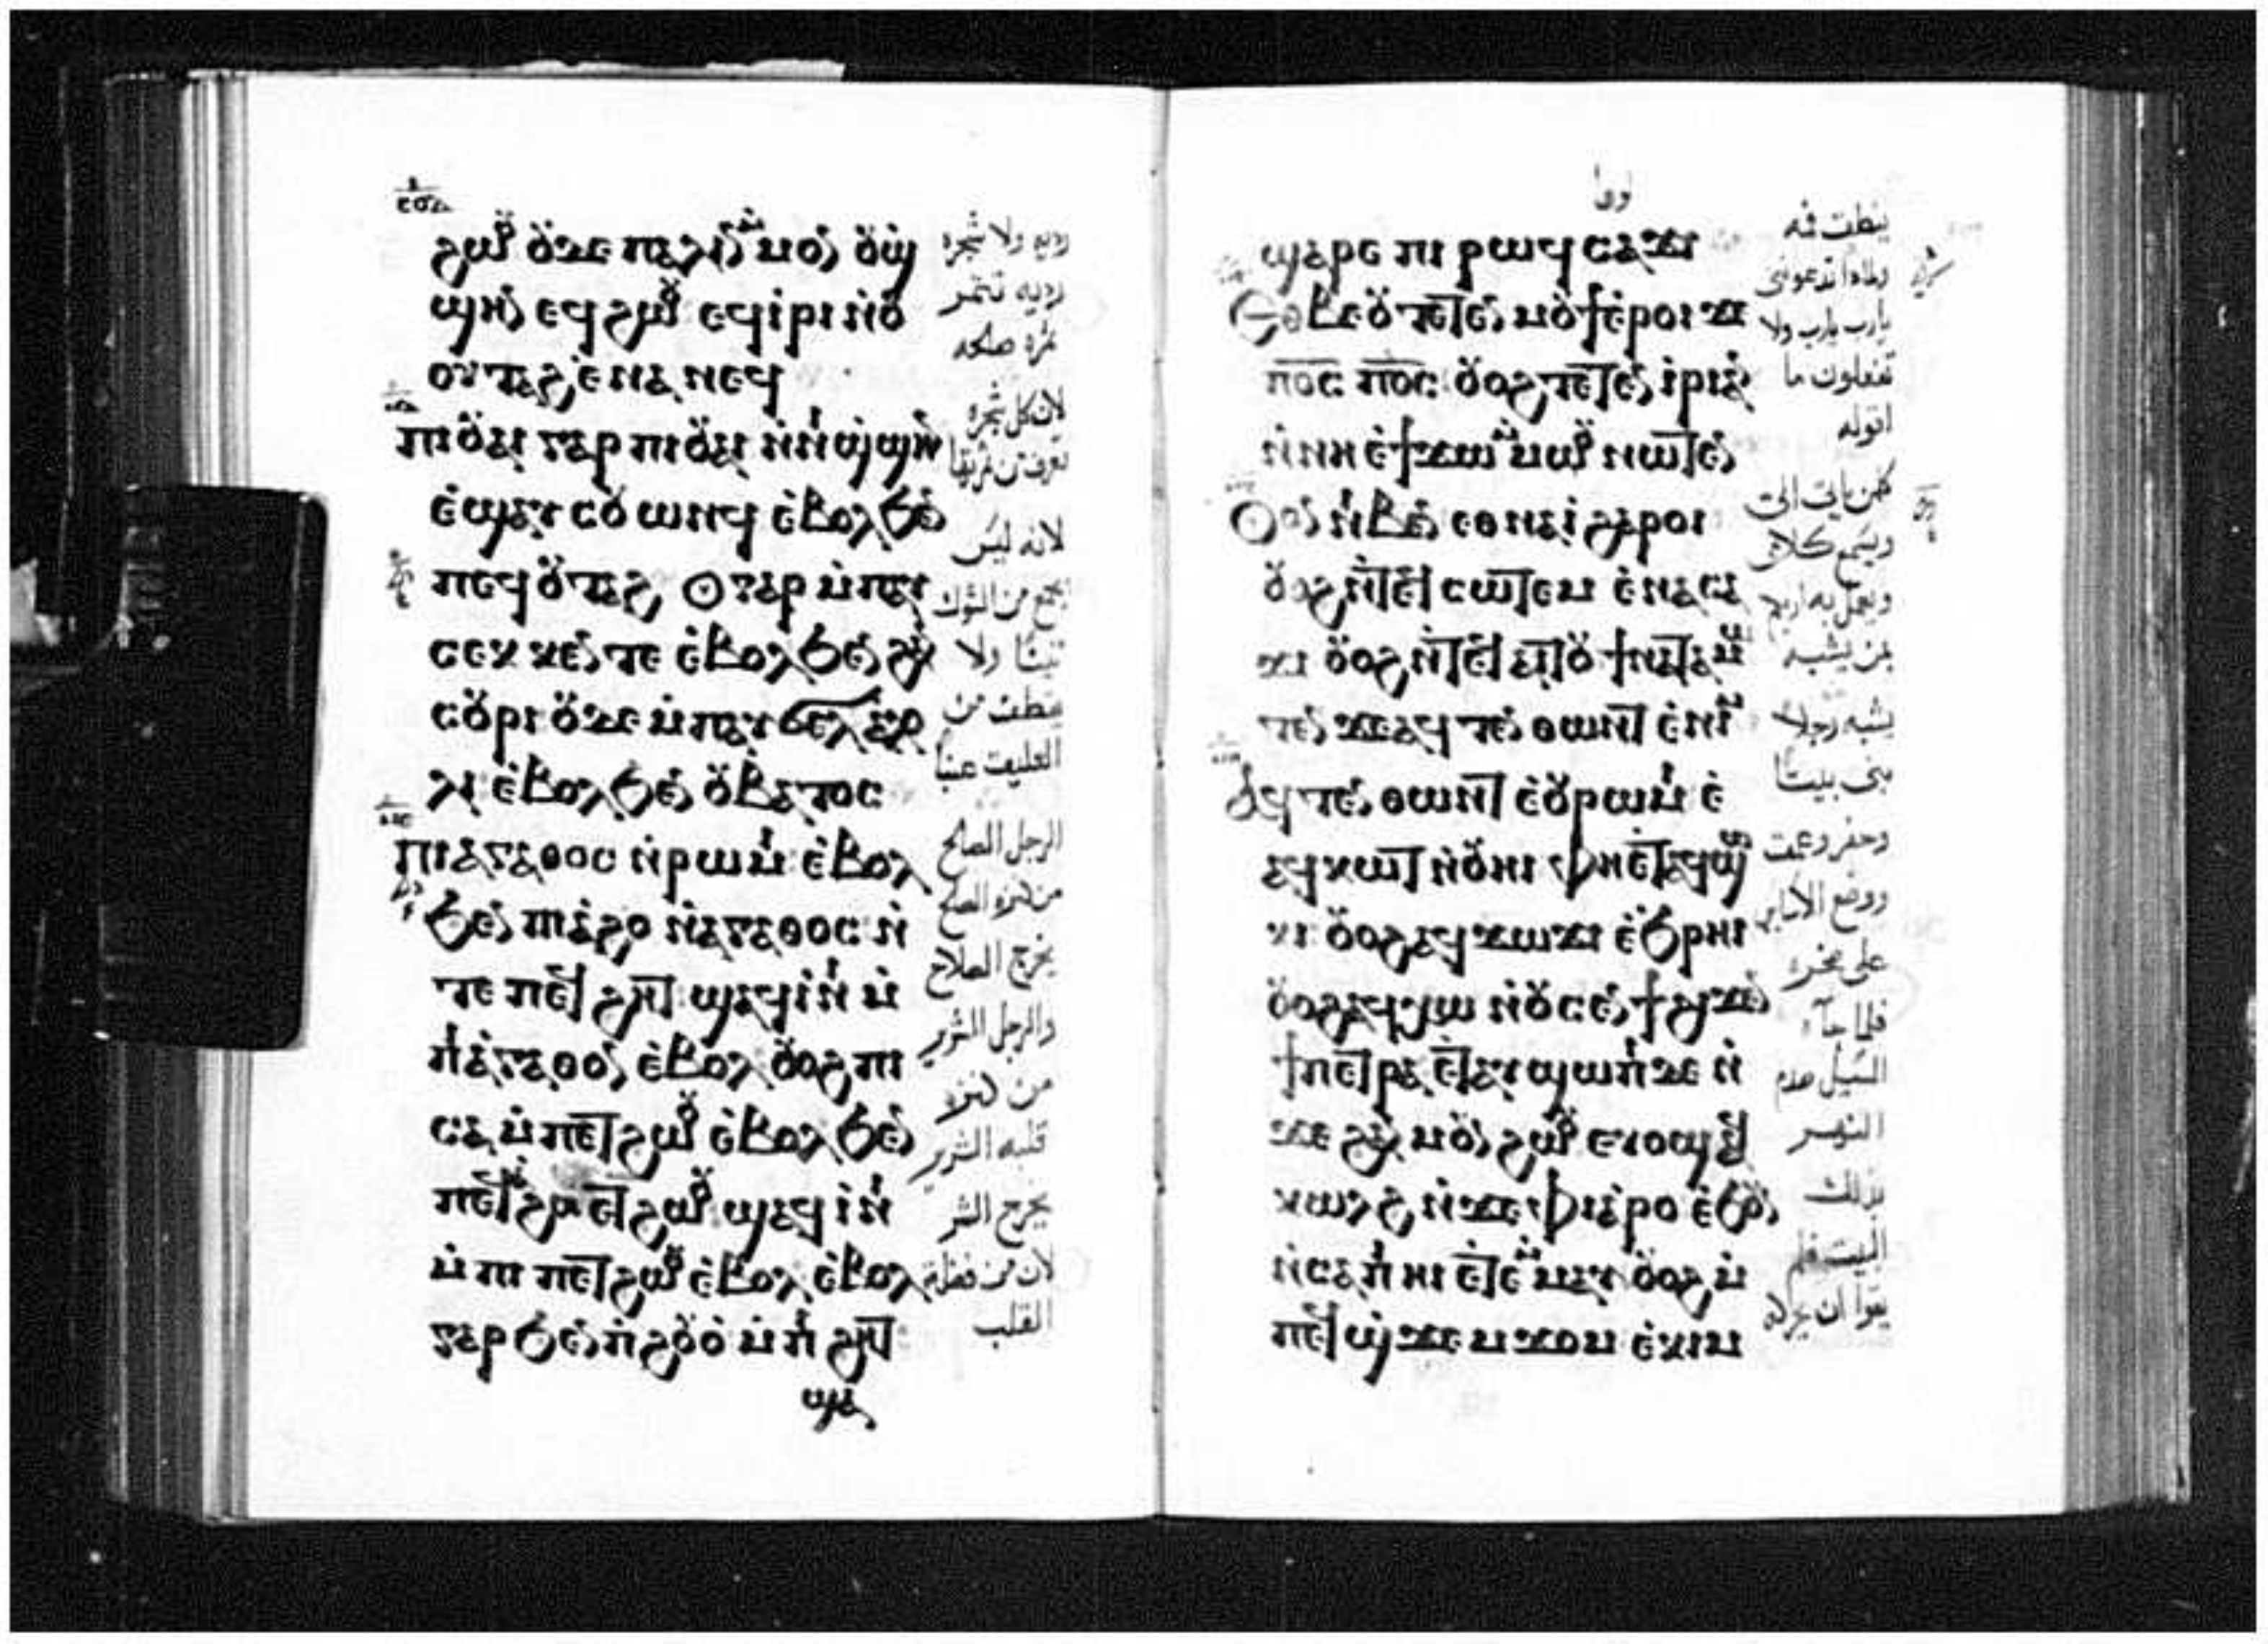 ϩⲱⲟⲩ ⲟⲩⲇⲉ ⲡⲁⲗⲓⲛ ⲙⲙⲟⲛ ⲟⲩϣ̀
ϣⲏⲛ ⲉϥϩⲱⲟⲩ ⲉϥⲓ̀ⲣⲓ ⲛ̀ⲟⲩ
ⲟⲩⲧⲁϩ ⲉ̀ⲛⲁⲛⲉϥ
ⲡⲓⲟⲩⲁⲓ ⲅⲁⲣ ⲡⲓⲟⲩⲁⲓ ⲛ̀ⲛⲓϣ̀ϣⲏⲛ
ⲉ̀ϣⲁⲩⲥⲟⲩⲱⲛϥ ⲉ̀ⲃⲟⲗϧⲉⲛ
ⲡⲉϥⲟⲩⲧⲁϩ ⲟⲩ ⲅⲁⲣ ⲙ̀ⲡⲁⲩ
ⲥⲉⲕ ⲕⲉⲛⲧⲉ ⲉ̀ⲃⲟⲗϧⲉⲛ ϩⲁⲛ
ⲥⲟⲩⲣⲓ ⲟⲩⲇⲉ ⲙ̀ⲡⲁⲩϭⲉⲗ ⲁⲗⲟ
ⲗⲓ ⲉ̀ⲃⲟⲗϧⲉⲛ ⲟⲩⲃⲁⲧⲟⲥ
ⲡⲓⲁⲅⲁⲑⲟⲥ ⲛ̀ⲣⲱⲙⲓ ⲉ̀ⲃⲟⲗ
ϧⲉⲛ ⲡⲓⲁ̀ϩⲟ ⲛ̀ⲁⲅⲁⲑⲟⲥ ⲛ̀
ⲧⲉ ⲡⲉϥϩⲏⲧ ϣⲁϥⲓ̀ⲛⲓ ⲙ̀
ⲡⲓⲁ̀ⲅⲁⲑⲟⲛ ⲉ̀ⲃⲟⲗ ⲟⲩⲟϩ ⲡⲓ
ⲥⲁ ⲙ̀ⲡⲉⲧϩⲱⲟⲩ ⲉ̀ⲃⲟⲗϧⲉⲛ
ⲡⲉϥⲁϩⲟ ⲉⲧϩⲱⲟⲩ ϣⲁϥⲓ̀ⲛⲓ
ⲙ̀ⲡⲓⲡⲉⲧϩⲱⲟⲩ ⲉ̀ⲃⲟⲗ ⲉ̀ⲃⲟⲗ
ⲅⲁⲣ ϧⲉⲛ ⲡ̀ϩⲟⲩⲟ̀ ⲙ̀ⲡⲓϩⲏⲧ
ϣⲁ
رديه ولا شجره
رديه تثمر
ثمره صالحه
لان كل شجره
تعرف من ثمرتها
لانه ليس
يجمع من الشوك
تينا ولا
يقطف من
العليق عنبا
الرجل الصالح
من كنزه الصالح
يخرج الصلاح
والرجل الشرير
من كنزه
قلبه الشرير
يخرج الشر
لان من فضلة
القلب
ϣⲁⲣⲉ ⲡⲓ ⲣⲱϥ ⲥⲁϫⲓ
ⲉⲑⲃⲉⲟⲩ ⲧⲉⲧⲉⲛⲙⲟⲩϯ ⲉ̀ⲣⲟⲓ ϫⲉ
ⲡ̅ⲟ̅ⲥ̅ ⲡ̅ⲟ̅ⲥ̅ ⲟⲩⲟϩ ⲧⲉⲧⲉⲛⲓ̀ⲣⲓ ⲁⲛ
ⲛ̀ⲛⲏ ⲉ̀ϯϫⲱ ⲙⲙⲱⲟⲩ ⲛⲱⲧⲉⲛ
ⲟⲩⲟⲛ ⲛⲓⲃⲉⲛ ⲉⲑⲛⲁⲓ̀ ϩⲁⲣⲟⲓ
ⲟⲩⲟϩ ⲛ̀ⲧⲉϥⲥⲱⲧⲉⲙ ⲉ̀ⲛⲁⲥⲁ
ϫⲓ ⲟⲩⲟϩ ⲛ̀ⲧⲉϥⲁⲓⲧⲟⲩ ϯⲛⲁⲧⲁⲙⲱ
ⲧⲉⲛ ϫⲉ ⲁϥⲧⲉⲛⲑⲱⲛⲧ ⲉ̀ⲛⲓⲙ
ⲁϥⲧⲉⲛⲑⲱⲛⲧ ⲉ̀ⲟⲩⲣⲱⲙⲓ ⲉ̀
ⲁϥⲕⲱⲧ ⲛ̀ⲟⲩⲏⲓ ⲫⲏⲉⲧⲁϥϣⲱ
ⲕⲓ ⲟⲩⲟϩ ⲁϥϫⲱⲕⲓ ⲉ̀ϧⲣⲏⲓ
ⲟⲩⲟϩ ⲁϥⲭⲱ ⲛ̀ⲟⲩⲥⲉⲛϯ ϩⲓϫⲉⲛ
ϯⲡⲉⲧⲣⲁ ⲉⲧⲁⲩϣⲱⲡⲓ ⲇⲉ ⲛ̀
ϫⲉ ϩⲁⲛⲙⲟⲩⲛϩⲱⲟⲩ ⲉⲩⲟϣ ⲁϥ
ⲕⲱⲗϩ ⲛ̀ϫⲉ ⲫⲓⲁⲣⲟ ⲉ̀ϧⲟⲩⲛ
ⲛ̀ⲥⲁ ⲡⲓⲏⲓ ⲉ̀ⲧⲉⲙⲙⲁⲩ ⲟⲩⲟϩ ⲙ̀
ⲡⲉϥϣ̀ϫⲉⲙϫⲟⲙ ⲉ̀ⲕⲓⲙ
ينطق فمه
ولماذا تدعونني
يارب يارب ولا
تفعلون ما
اقوله
كلمن ياتي الي
ويسمع كلامي
ويعمل به اريكم
بمن يشبه
يشبه رجلا
بنى بيتا
وحفر وعمق
ووضع الاساس
على صخره
فلما جاء
السيل صدم
النهر
ذلك
البيت فلم
يقوا ان يحركه